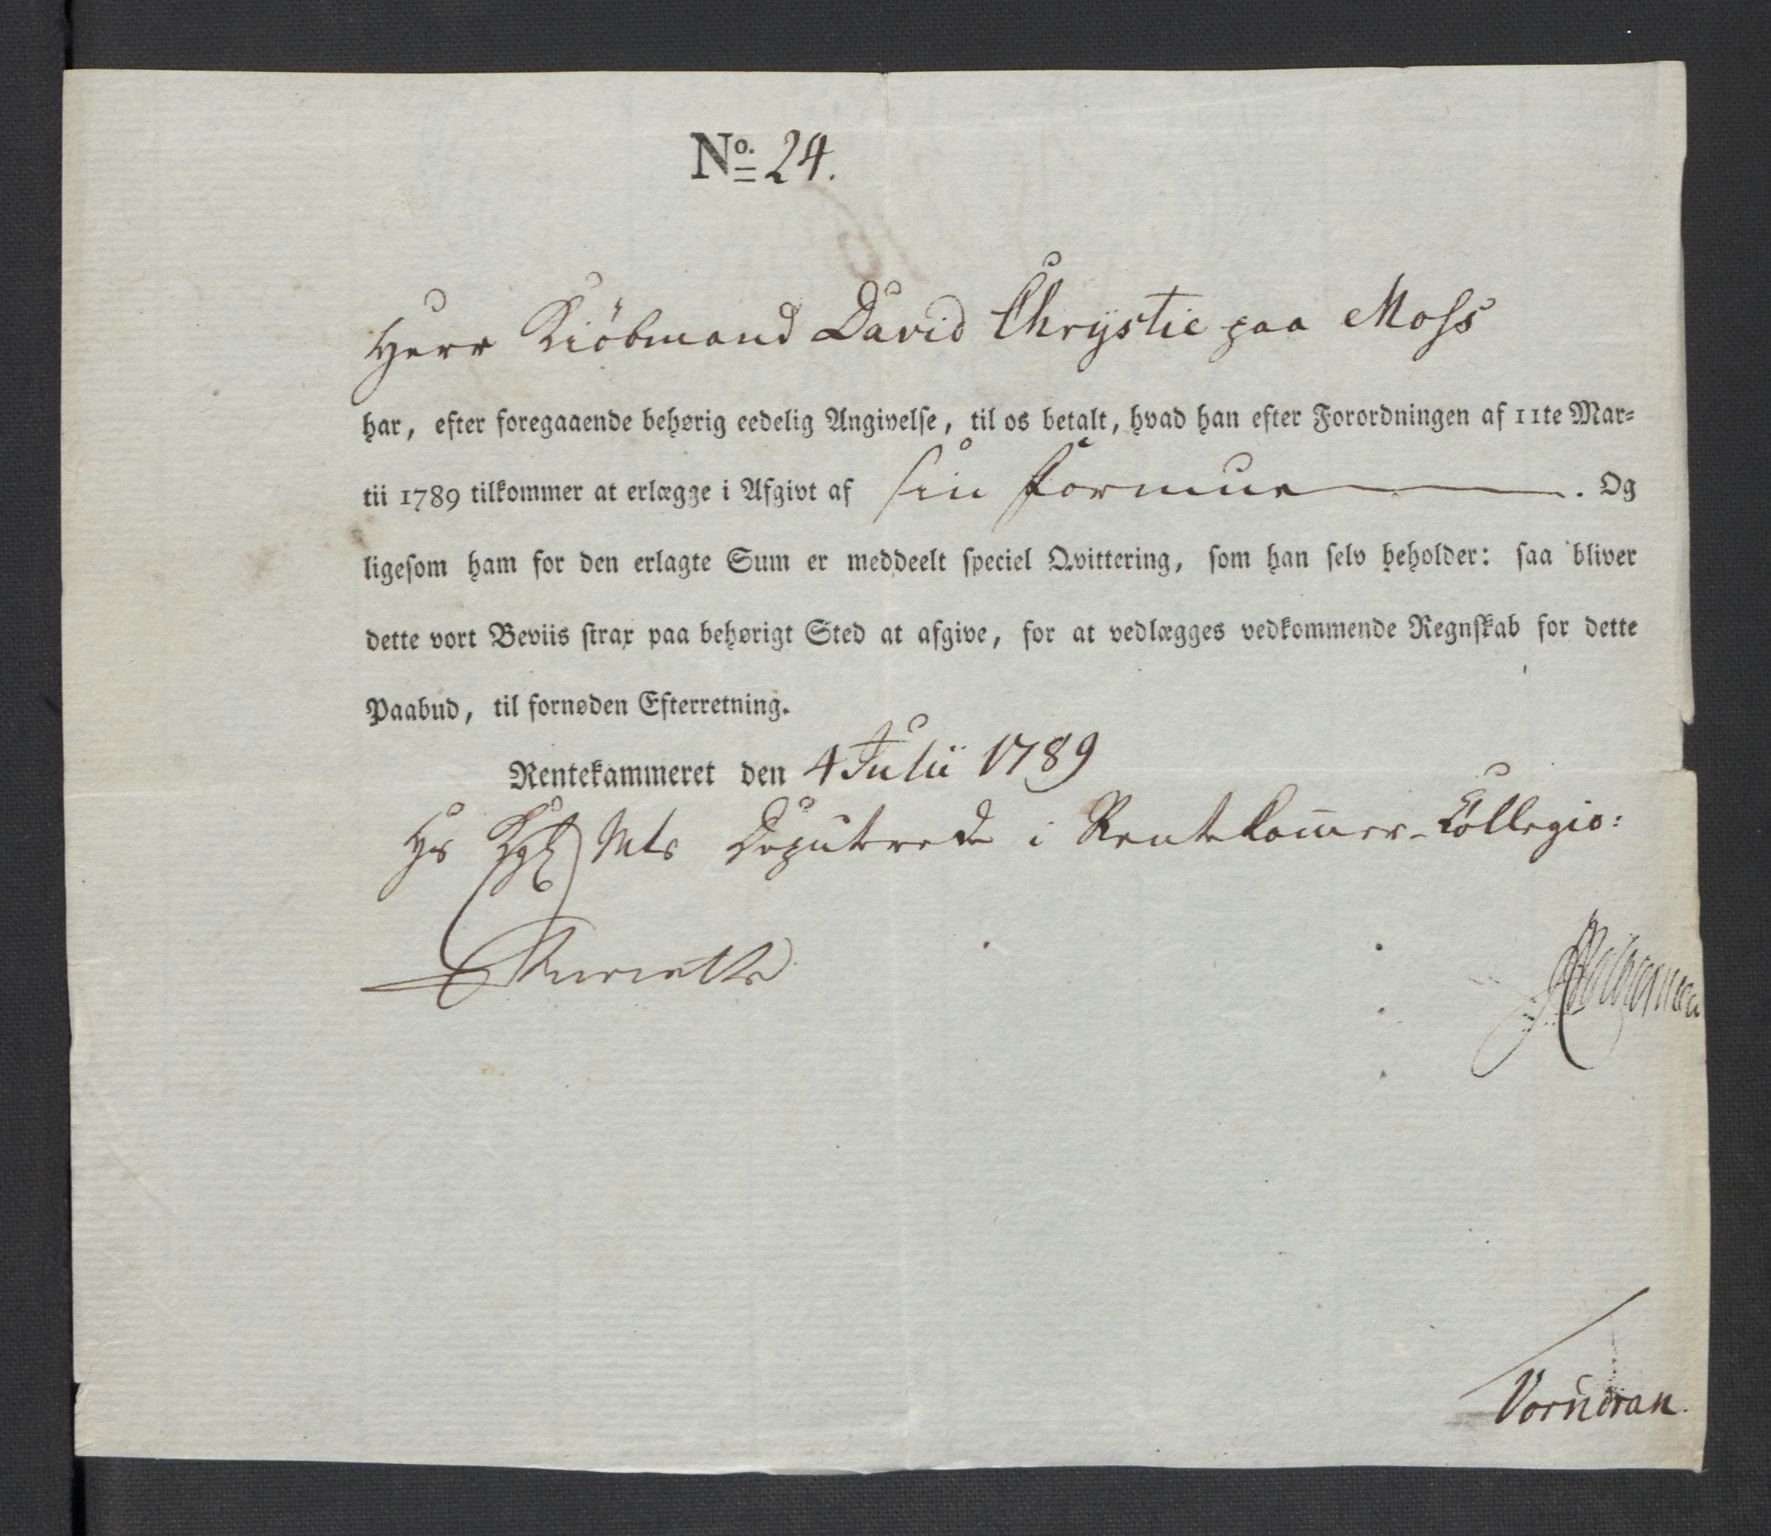 No. 24.
Herr Kiöbmand David Chrystie paa Moss
har, efter foregaaende behørig eedelig Angivelse, til os betalt, hvad han efter Forordningen af 11te Mar=
tii 1789 tilkommer at erlægge i Afgivt af sin Formue. Og
ligesom ham for den erlagte Sum er meddeelt speciel Qvittering, som han selv beholder: saa bliver
dette vort Beviis strax paa behørigt Sted at afgive, for at vedlægges vedkommende Regnskab for dette
Paabud, til fornøden Efterretning.
Rentekammeret den 4 Julii 1789
Hs Kgl Mts Deputerede i Rentekam̄er-Collegio:
Vorndran.